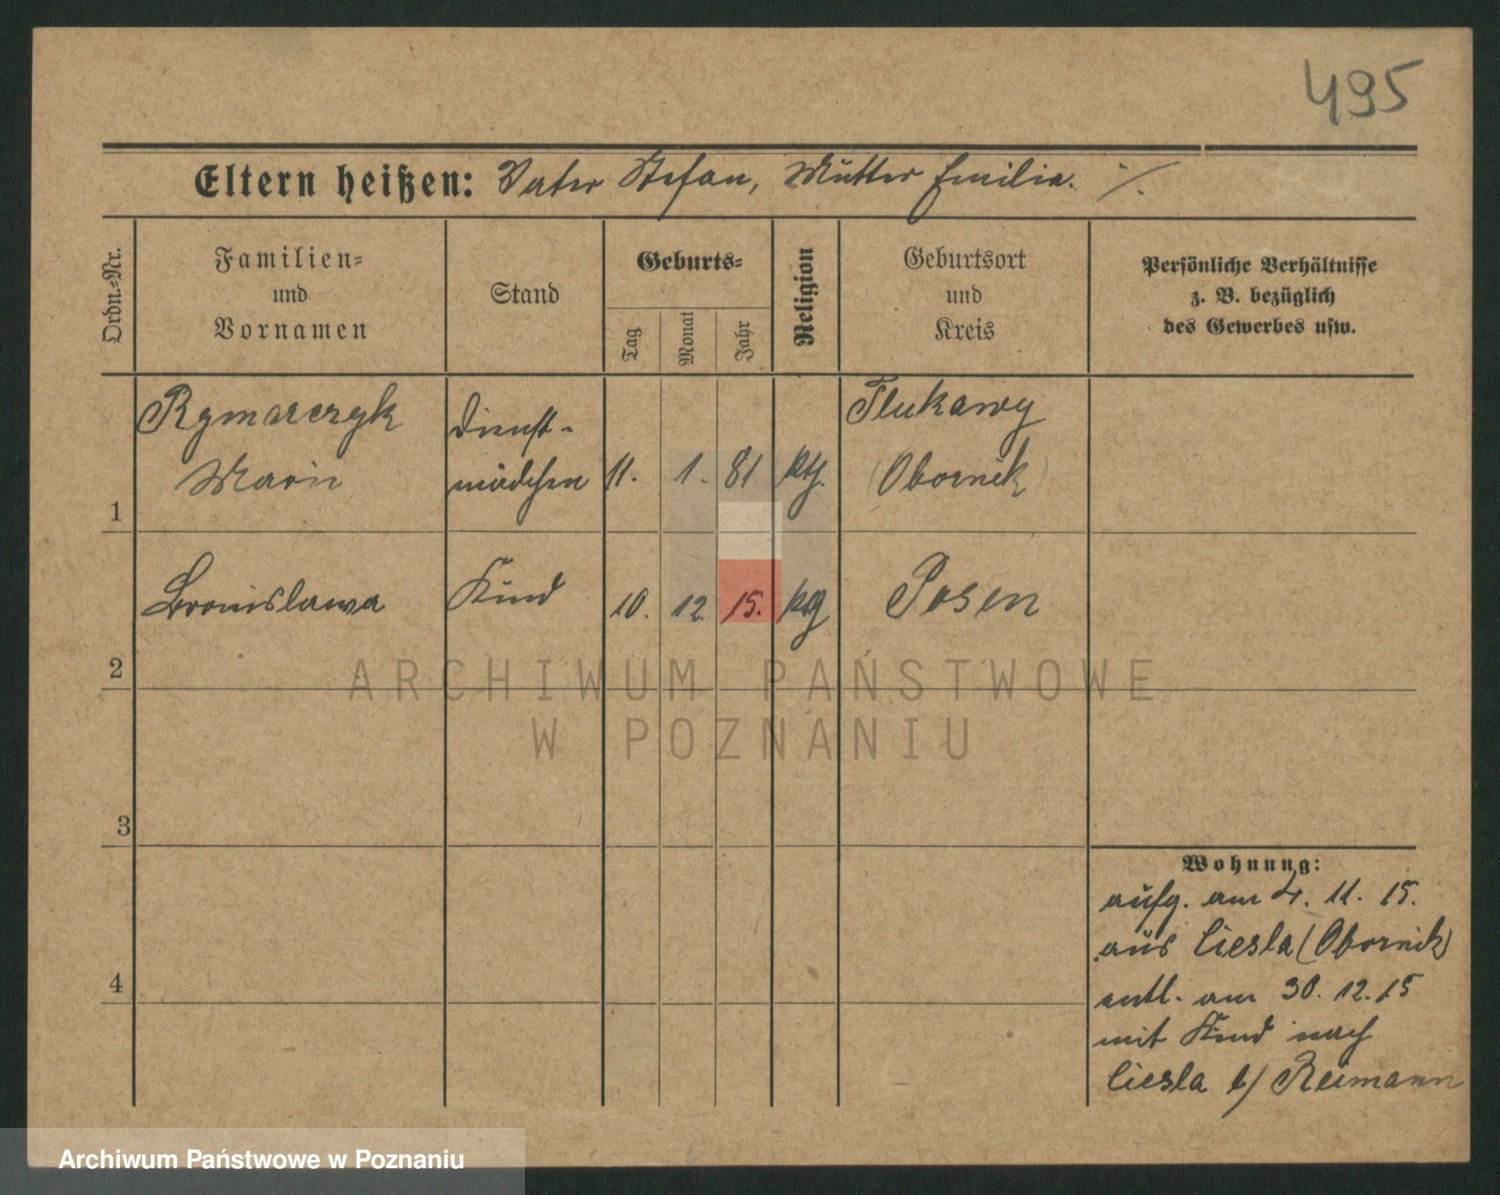 495
Eltern heißen: Vater Stefan, Mutter Emilia. ·/.
Ordn.-Nr.
Familien-
und
Vornamen
Stand
Geburts-
Tag
Monat
Jahr
Religion
Geburtsort
und
Kreis
Persönliche Verhältnisse
z. B. bezüglich
des Gewerbes usw.
Rymarczyk
Marie
Dienst-
mädchen
11. 1. 81 kth.
Tlukawy
(Obornik)
1
Bronislawa
Kind
10. 12. 15.
Posen
2
ARCHIWUM PAŃSTWOWE
W POZNANIU
3
4
Wohnung:
aufg. am 4. 11. 15.
aus Ciesla (Obornik)
entl. am 30. 12. 15
mit Kind nach
Ciesla b/ Reimann
Archiwum Państwowe w Poznaniu